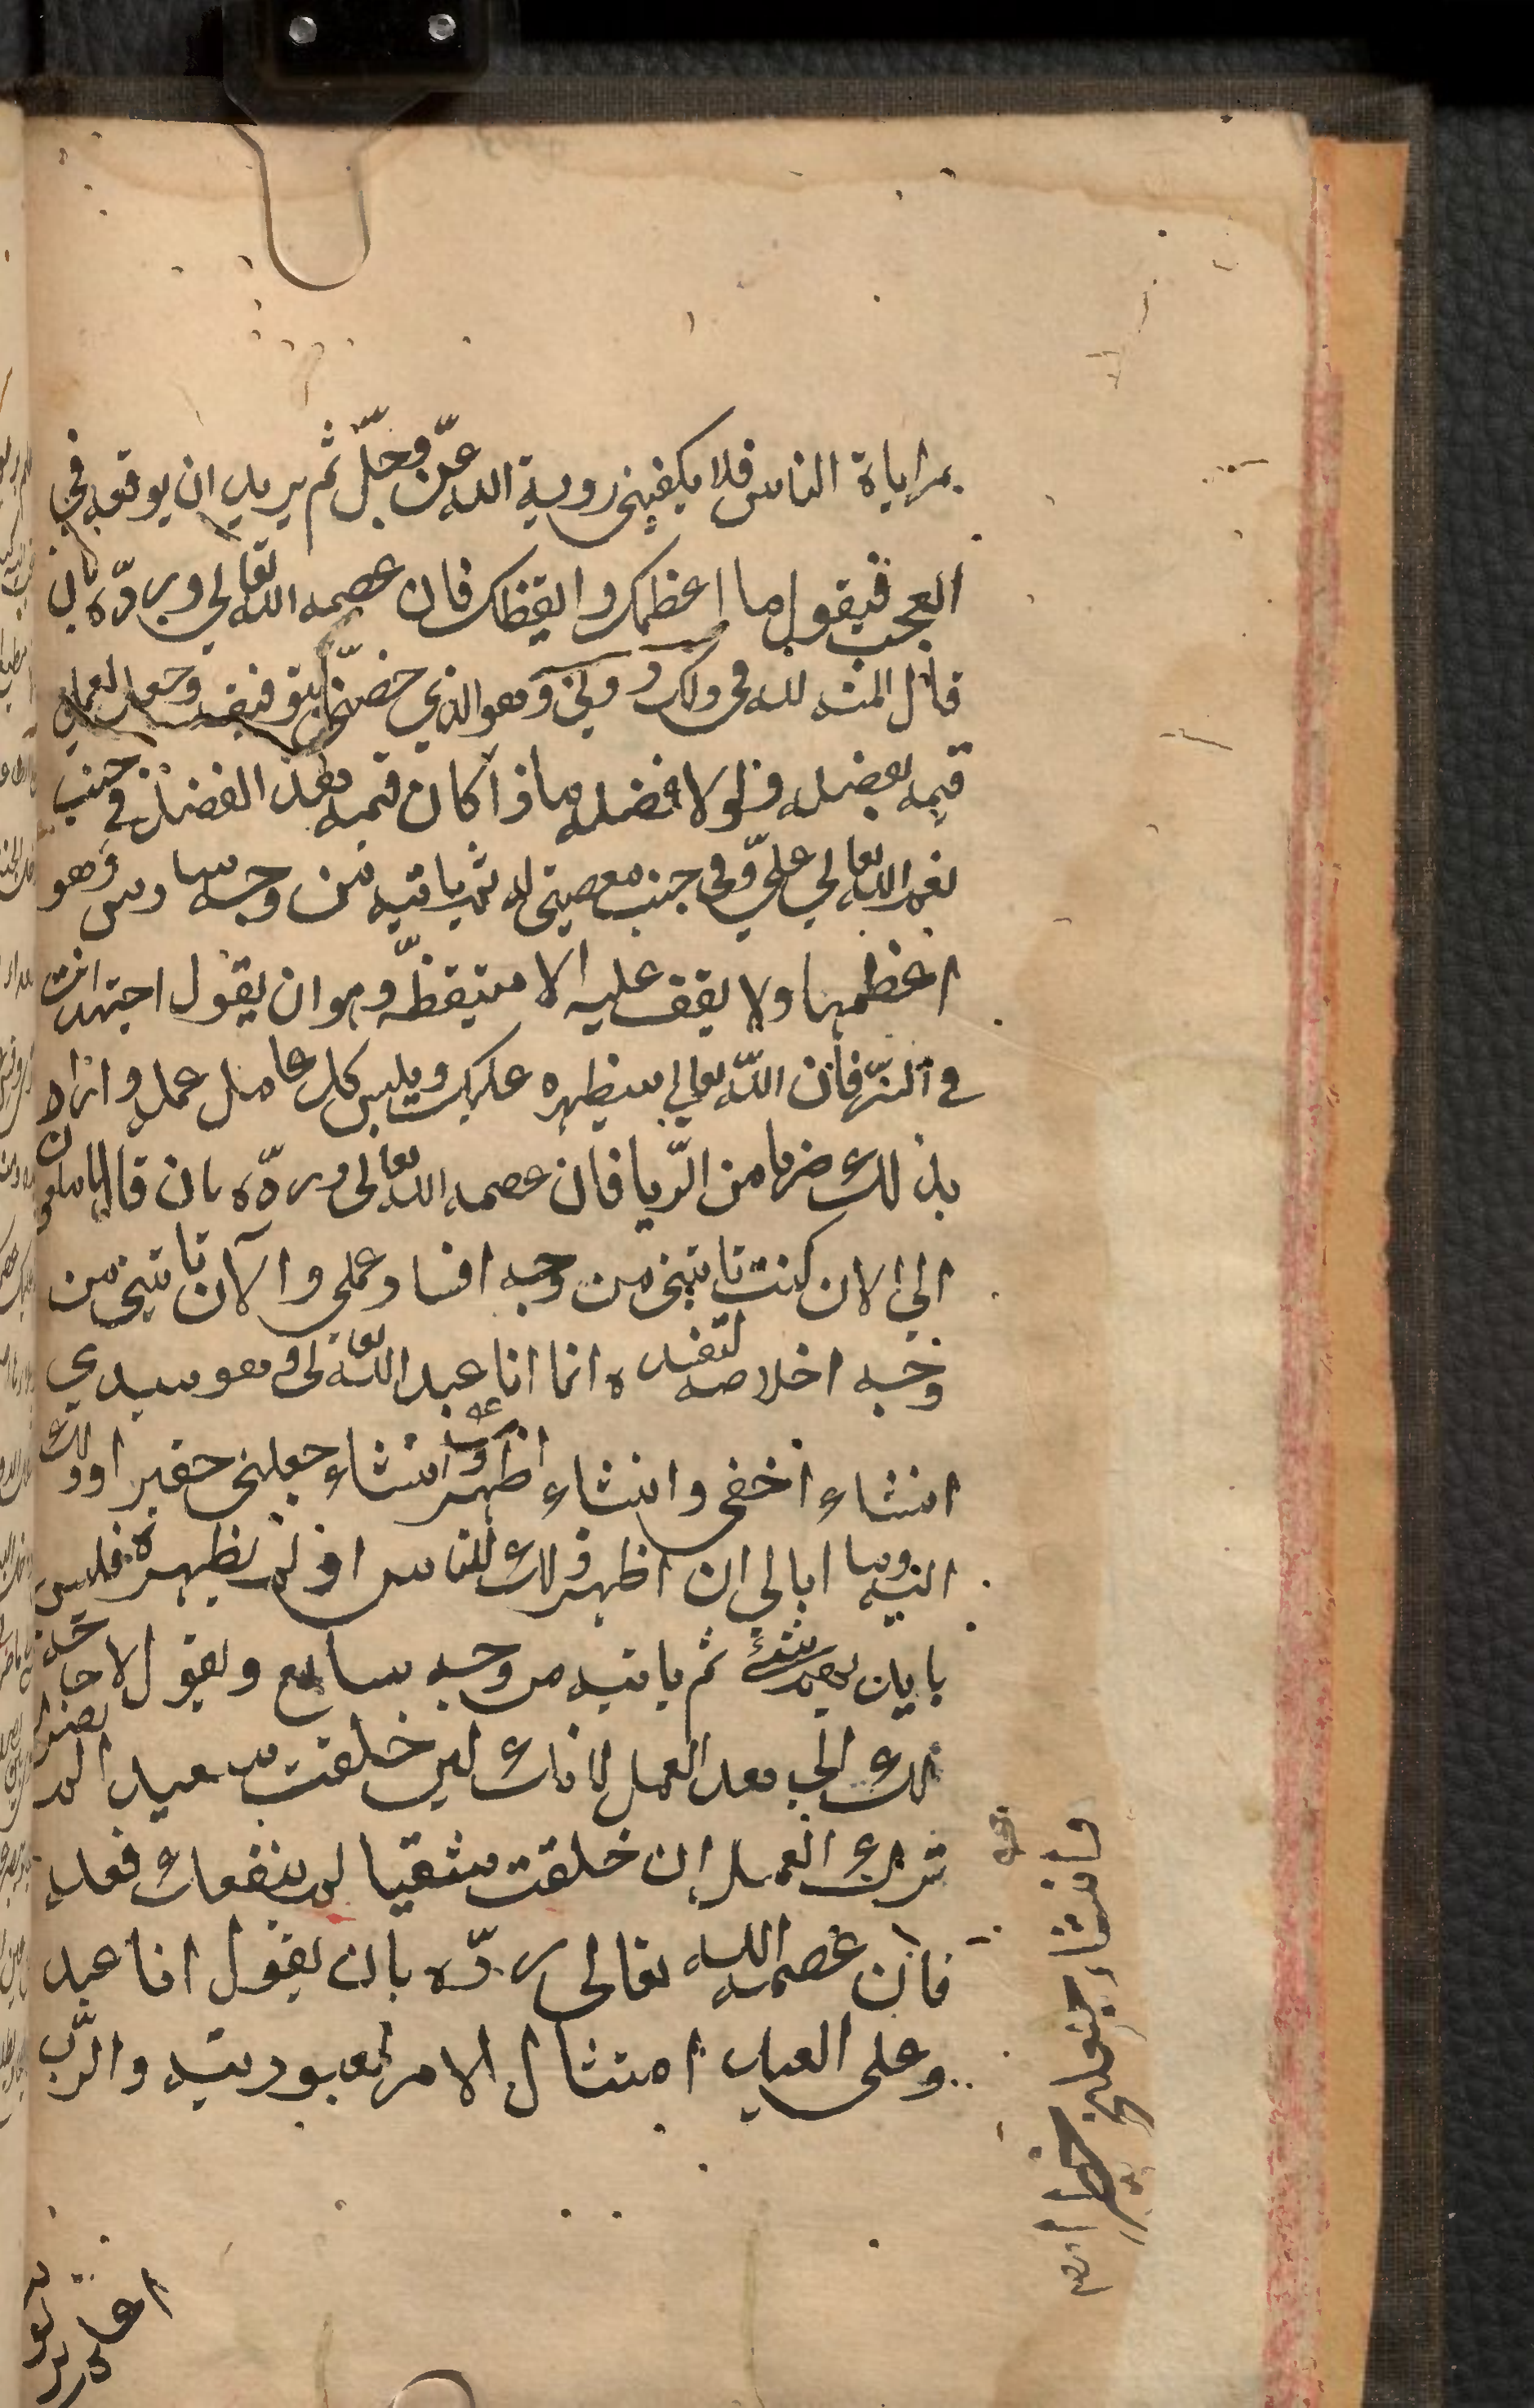 بمراياة الناس فلا يكفيني روية الله عزّ وجلّ ثم يريد ان يوقعه في
العجب فيقول ما اعظمك وايقظك فان عصمه الله تعالى وبردّه بان
قال المنه لله في ذلك دوني وهو الذي خصني بتوفيقه وجعل لعملي
قيمه بفضله ولولا فضله ماذا كان قيمه هذا الفضل في جنب
نعم الله تعالي عليّ وفي جنب معصيتي له ثم ياتيه من وجه سادس وهو
اعظمها ولا يقف عليه الا متيقظ وهو ان يقول اجتهد انت
في السّر فان الله تعالي سيظهره عليك ويلبس كل عامل عمله واراد
بذلك ضربا من الريا فان عصمه الله تعالى وردّه بان قال يا ملعون
الي الان كنت تاتيني من وجه افساد عملي والآن تاتيني من
وجه اخلاصه لتفسده انما انا عبد الله تعالى وهو سيدي
انشاء اخفي وانشاء اظهر وانشاء جعلني حقيرا وذلك
اليه وما ابالي ان اظهر ذلك للناس او لم يظهره فليس
بايديهم شئ ثم ياتيه من وجه سابع ويقول لا حاجة
لك الي هذا العمل لانك ان خلقت سعيدا لم يضرك
ترك العمل ان خلقت شقيا لم ينفعك فعله
فان عصمه الله تعالى ردّه بان يقول انا عبد
وعلى العبد امتثال الامر لعبوديته والرّب
وانشاء جعلني خطيرا